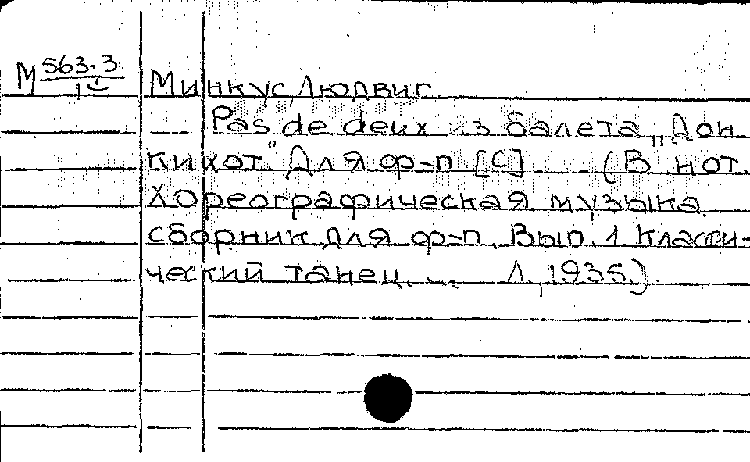 М 563.3
Минкус, Людвиг.
Pas de deux из балета „Дон
Кихот." Для ф-п [С] (В нот.
Хореографическая музыка
сборник для ф-п. Вып. 1 Класси-
ческий танец. ... Л., 1935.)